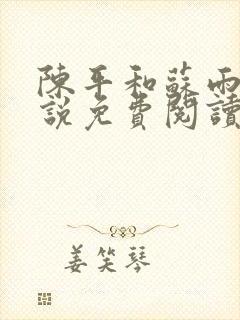 陳平和蘇雨
説免費閱讀
姜笑琴